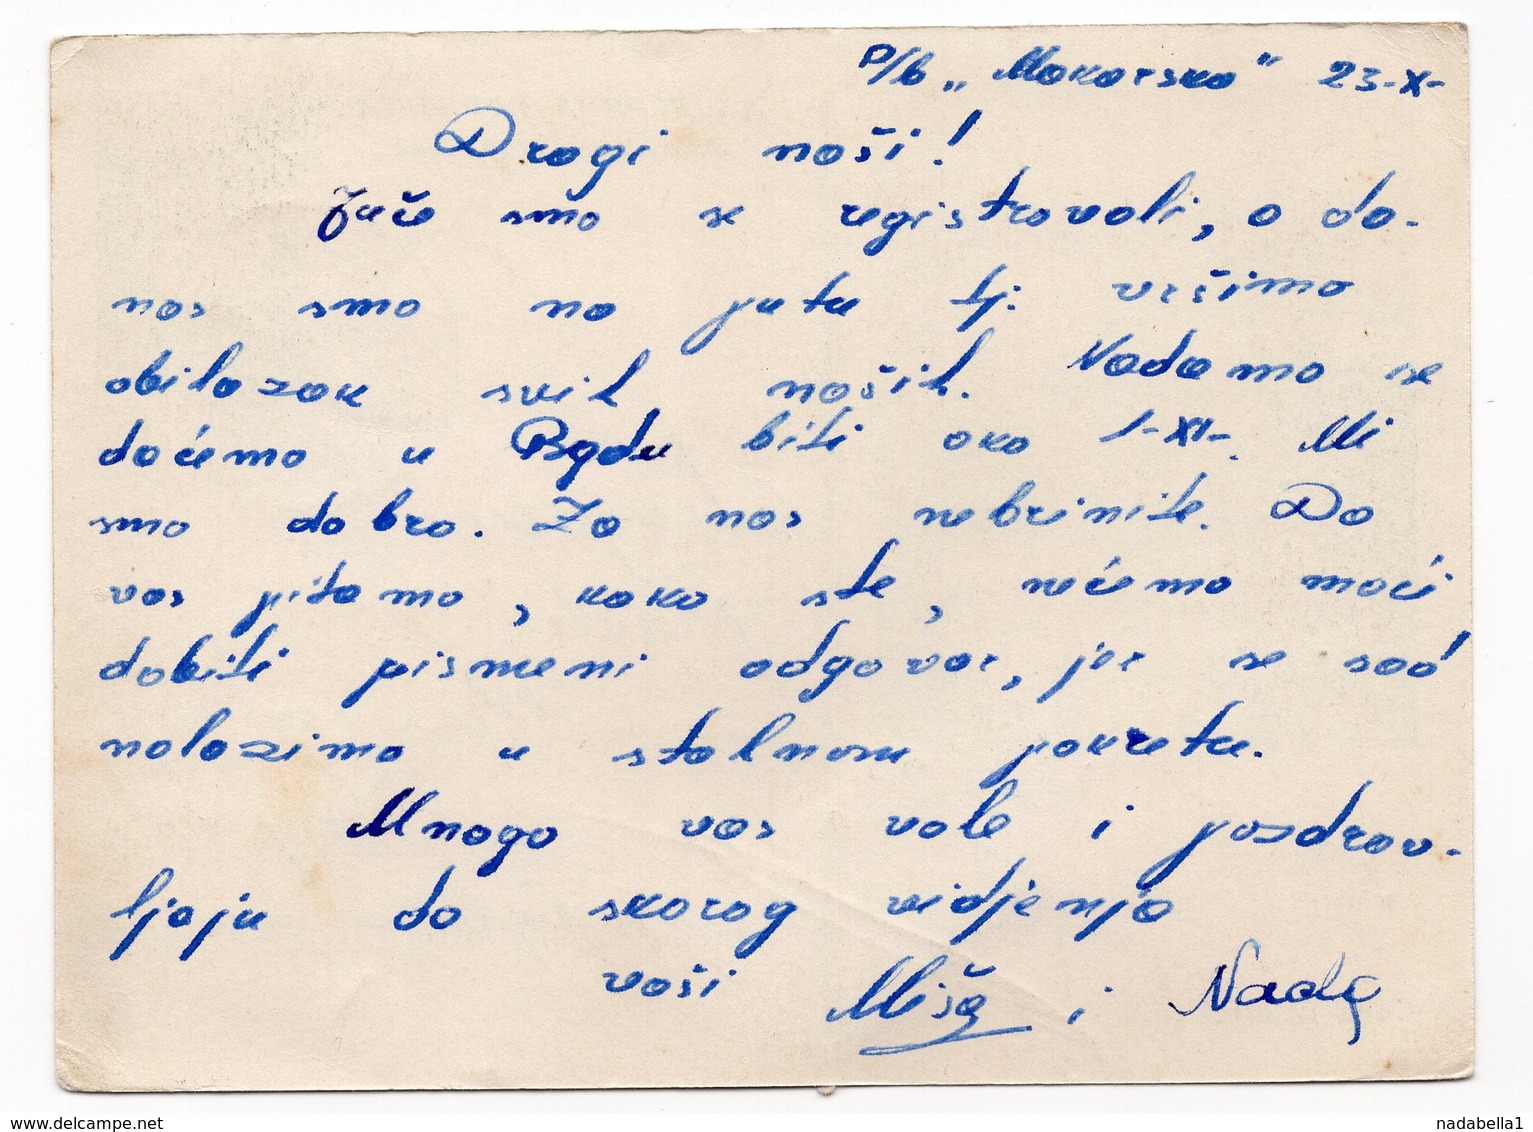 P/b „Makarska“ 23-X-
Dragi naši!
Juče smo se registrovali, a da-
nas smo na putu tj. vršimo
obilazak svih naših. Nadamo se
da ćemo u Bgdu biti oko 1-XI-. Mi
smo dobro. Za nas nebrinite. Da
vas pitamo, kako ste, nećemo moći
dobiti pismeni odgovor, jer se sad
nalazimo u stalnom pokretu.
Mnogo vas vole i pozdrav-
ljaju do skorog vidjenja
vaši Miša i Nada
www.delcampe.net
nadabella1